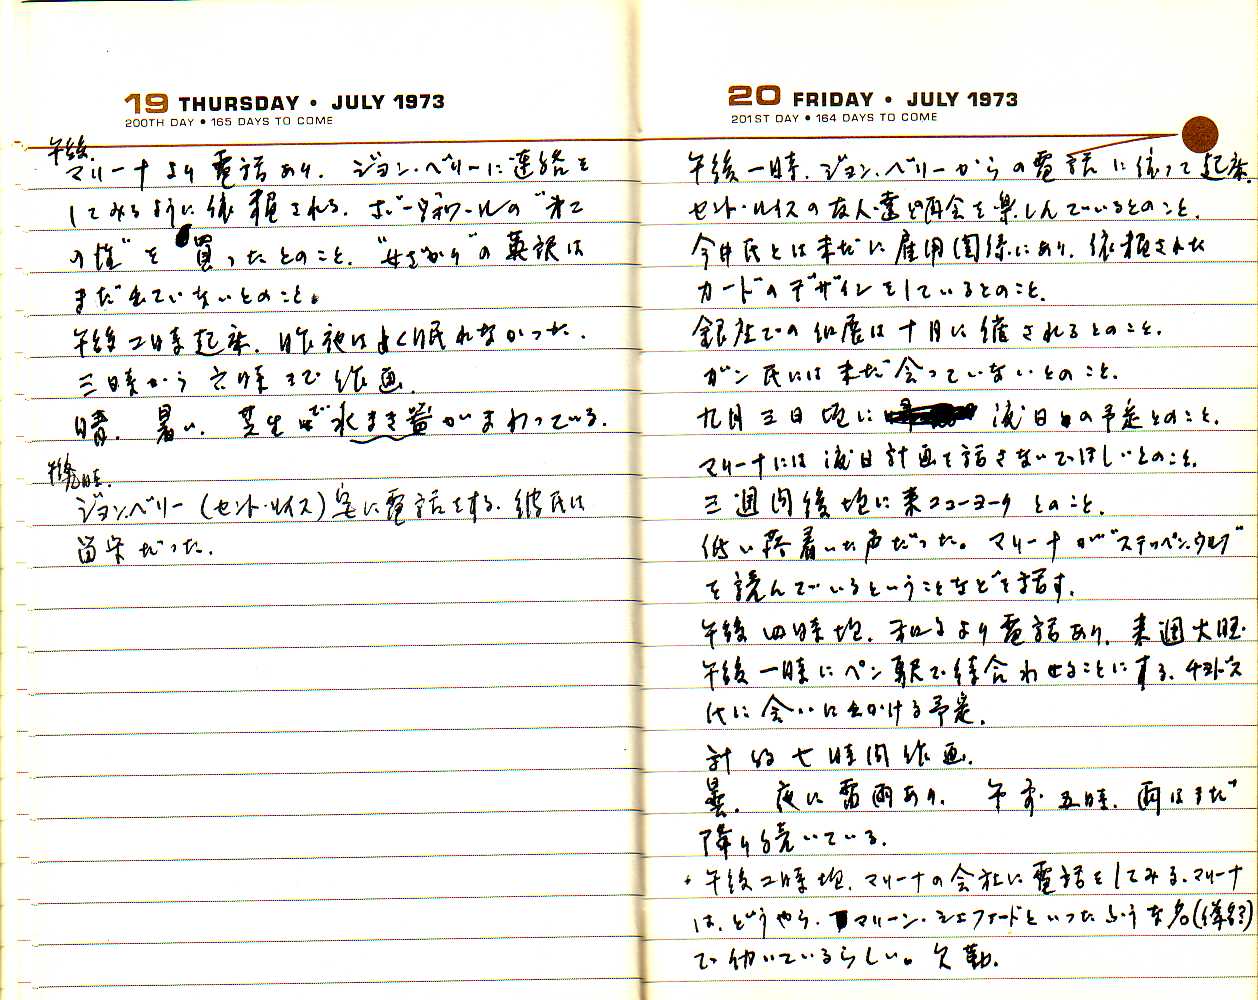 19 THURSDAY • JULY 1973
200TH DAY • 165 DAYS TO COME
午後、
マリーナより電話あり。ジョン・ベリーに連絡を
してみるように依頼される。ボーヴォワールの
を買ったとのこと。“女ざかり”の英訳は
まだ出ていないとのこと。
午後二時起床。昨夜はよく眠れなかった。
三時から六時まで作画。
晴。暑い。芝生で水まき器がまわっている。
ジョン・ベリー（セント・ルイス）宅に電話をする。彼氏は
留守だった。
20 FRIDAY • JULY 1973
201ST DAY • 164 DAYS TO COME
午後一時、ジョン・ベリーからの電話に依って起床。
セント・ルイスの友人達と再会を楽しんでいるとのこと。
今井氏とは未だに雇用関係にあり、依頼された
カードのデザインをしているとのこと。
銀座での個展は十月に催されるとのこと。
ガン氏には未だ会っていないとのこと。
九月三日頃に 渡日の予定とのこと。
マリーナには渡日計画を話さないでほしいとのこと。
三週間後頃に来ニューヨークとのこと。
低い落着いた声だった。マリーナが“ステッペン・ウルフ”
を読んでいるということなどを話す。
午後四時頃、和子より電話あり。来週火曜
午後一時にペン駅で待合わせることにする。
氏に会いに出かける予定。
計約七時間作画。
曇。夜に雷雨あり。午前五時、雨はまだ
降り続いている。
午後二時頃、マリーナの会社に電話をしてみる。マリーナ
は、どうやら、マリーン・シェファードといったような名
で働いているらしい。欠勤。